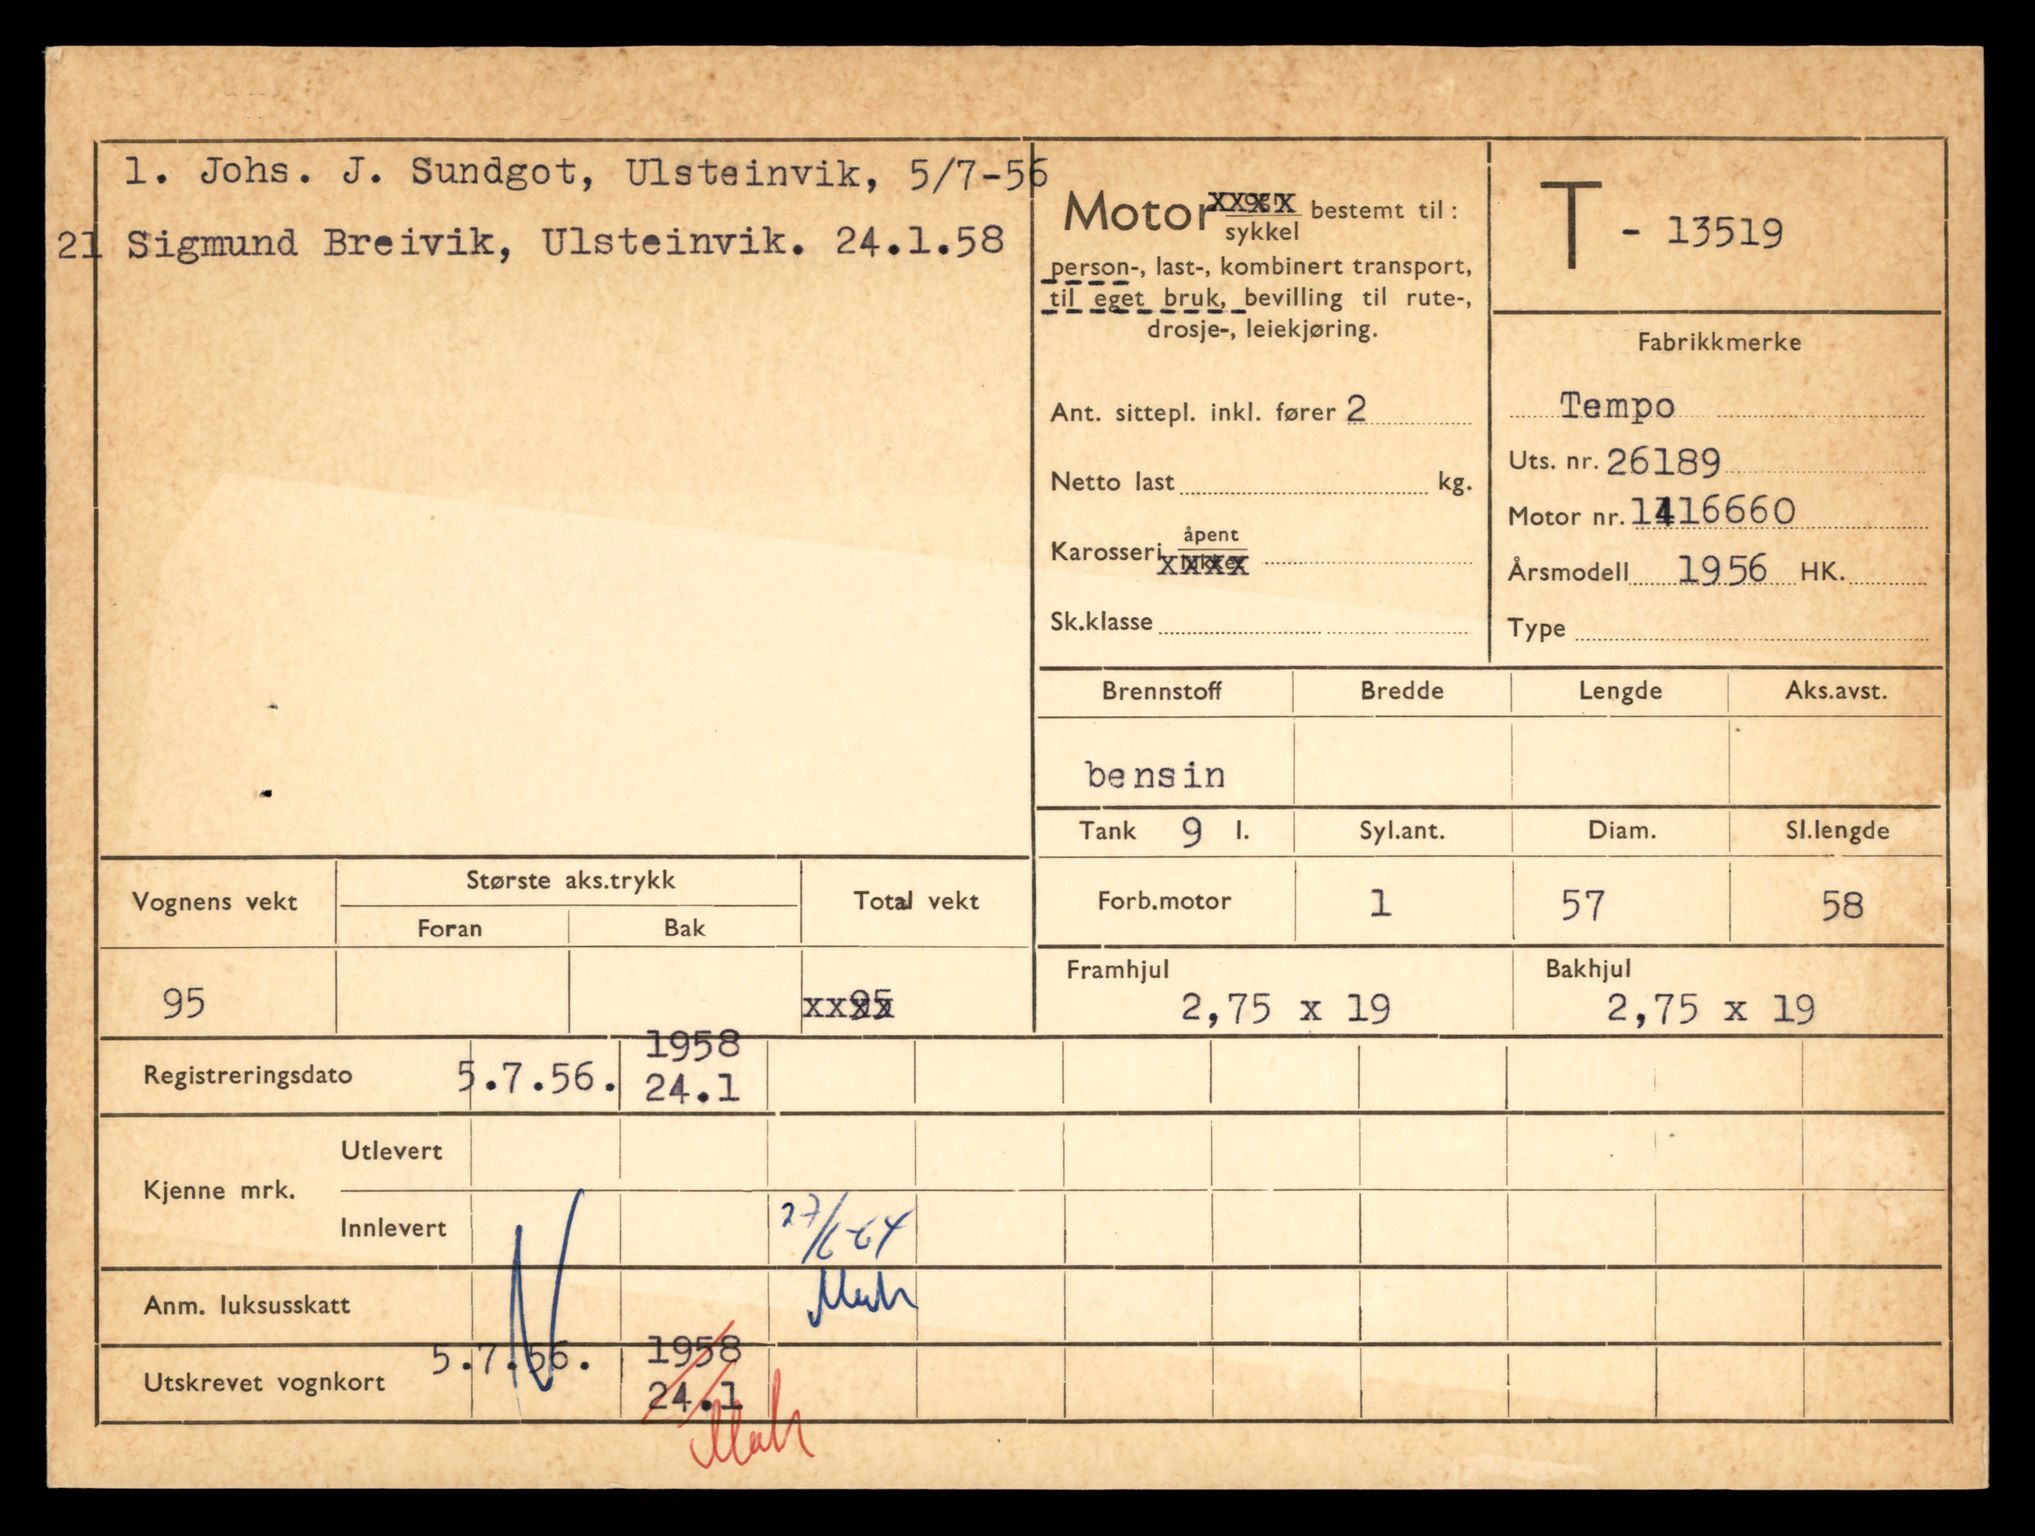 1. Johs. J. Sundgot, Ulsteinvik, 5/7-56
21 Sigmund Breivik, Ulsteinvik. 24.1.58
Motor xxxx bestemt til:
sykkel
person-, last-, kombinert transport,
til eget bruk, bevilling til rute-,
drosje-, leiekjøring.
Ant. sittepl. inkl. fører 2
Netto last kg.
Karosseri åpent
xxxx
Sk.klasse
T - 13519
Fabrikkmerke
Tempo
Uts. nr. 26189
Motor nr. 1416660
Årsmodell 1956 HK.
Type
Brennstoff Bredde Lengde Aks.avst.
bensin
Tank 9 l. Syl.ant. Diam. Sl.lengde
Forb.motor 1 57 58
Framhjul Bakhjul
2,75 x 19 2,75 x 19
Vognens vekt Største aks.trykk Total vekt
Foran Bak
95 xx95
Registreringsdato 5.7.56. 1958
24.1
Kjenne mrk. Utlevert
Innlevert 27/6-64
Anm. luksusskatt
Utskrevet vognkort 5.7.56. 1958
24.1